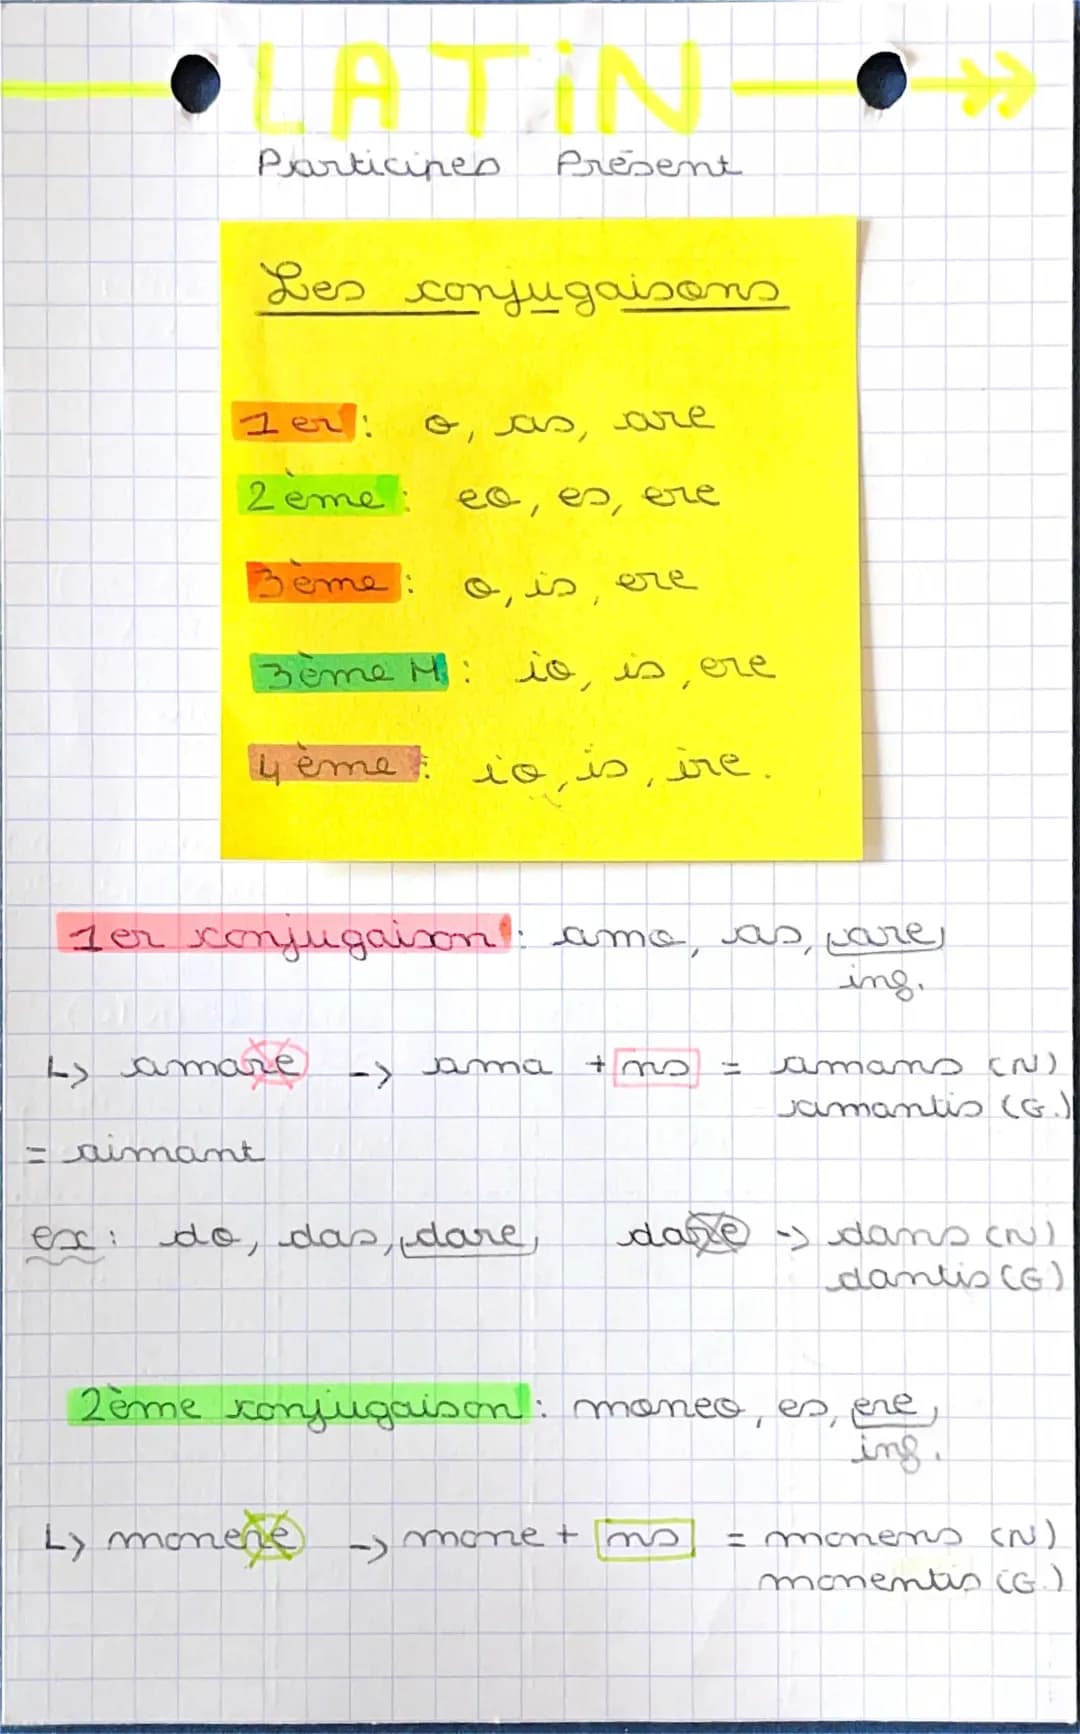 LATiN
Participes Présent
Les conjugaisons
1er : o, as, are
2ème : eo, es, ere
3ème : o, is, ere
3ème M : io, is, ere
4ème : io, is, ire.
1er conjugaison : amo, as, are,
inf.
↳ amare -> ama + ns = amans (N)
amantis (G.)
= aimant
ex : do, das, dare, dare -> dans (N)
dantis (G)
2ème conjugaison : moneo, es, ere,
inf.
↳ monere -> mone + ns = monens (N)
monentis (G.)